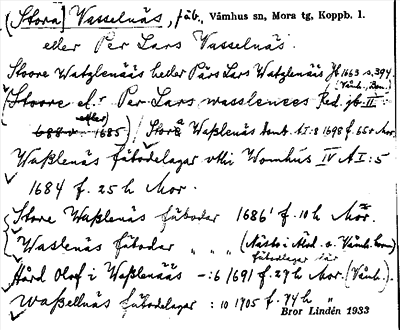 (Stora) Wasselnäs, fäb., Våmhus sn, Mora tg, Koppb. l.
eller Per Lars Wasselnäs.
Stoore Watzlenääs heller Pärs Lars Watzlenääs Jb 1663 s. 394.
(Våmh. Bon.)
(Stoore el. Per Lars wasslences Red. jb II:
efter
688 v. 1685) / Stora Waßlenäs AI:8 1698 f. 65 v Mor.
Waßlenäs fäbodelagar vthi Womhus IV AI:5
1684 f. 25 h Mor.
Store Waßlenäs fäboder 1686 f. 10 h Mor.
Waslenäs fäboder " " " (Näst i Älvd. o. Våmh. bon)
fäbodelagar där
Hård Olof i Waßlenääs -:6 1691 f. 27 h Mor. (Våmh.)
Waßellnäs fäbodelagar :10 1705 f. 74 h "
Bror Lindén 1933